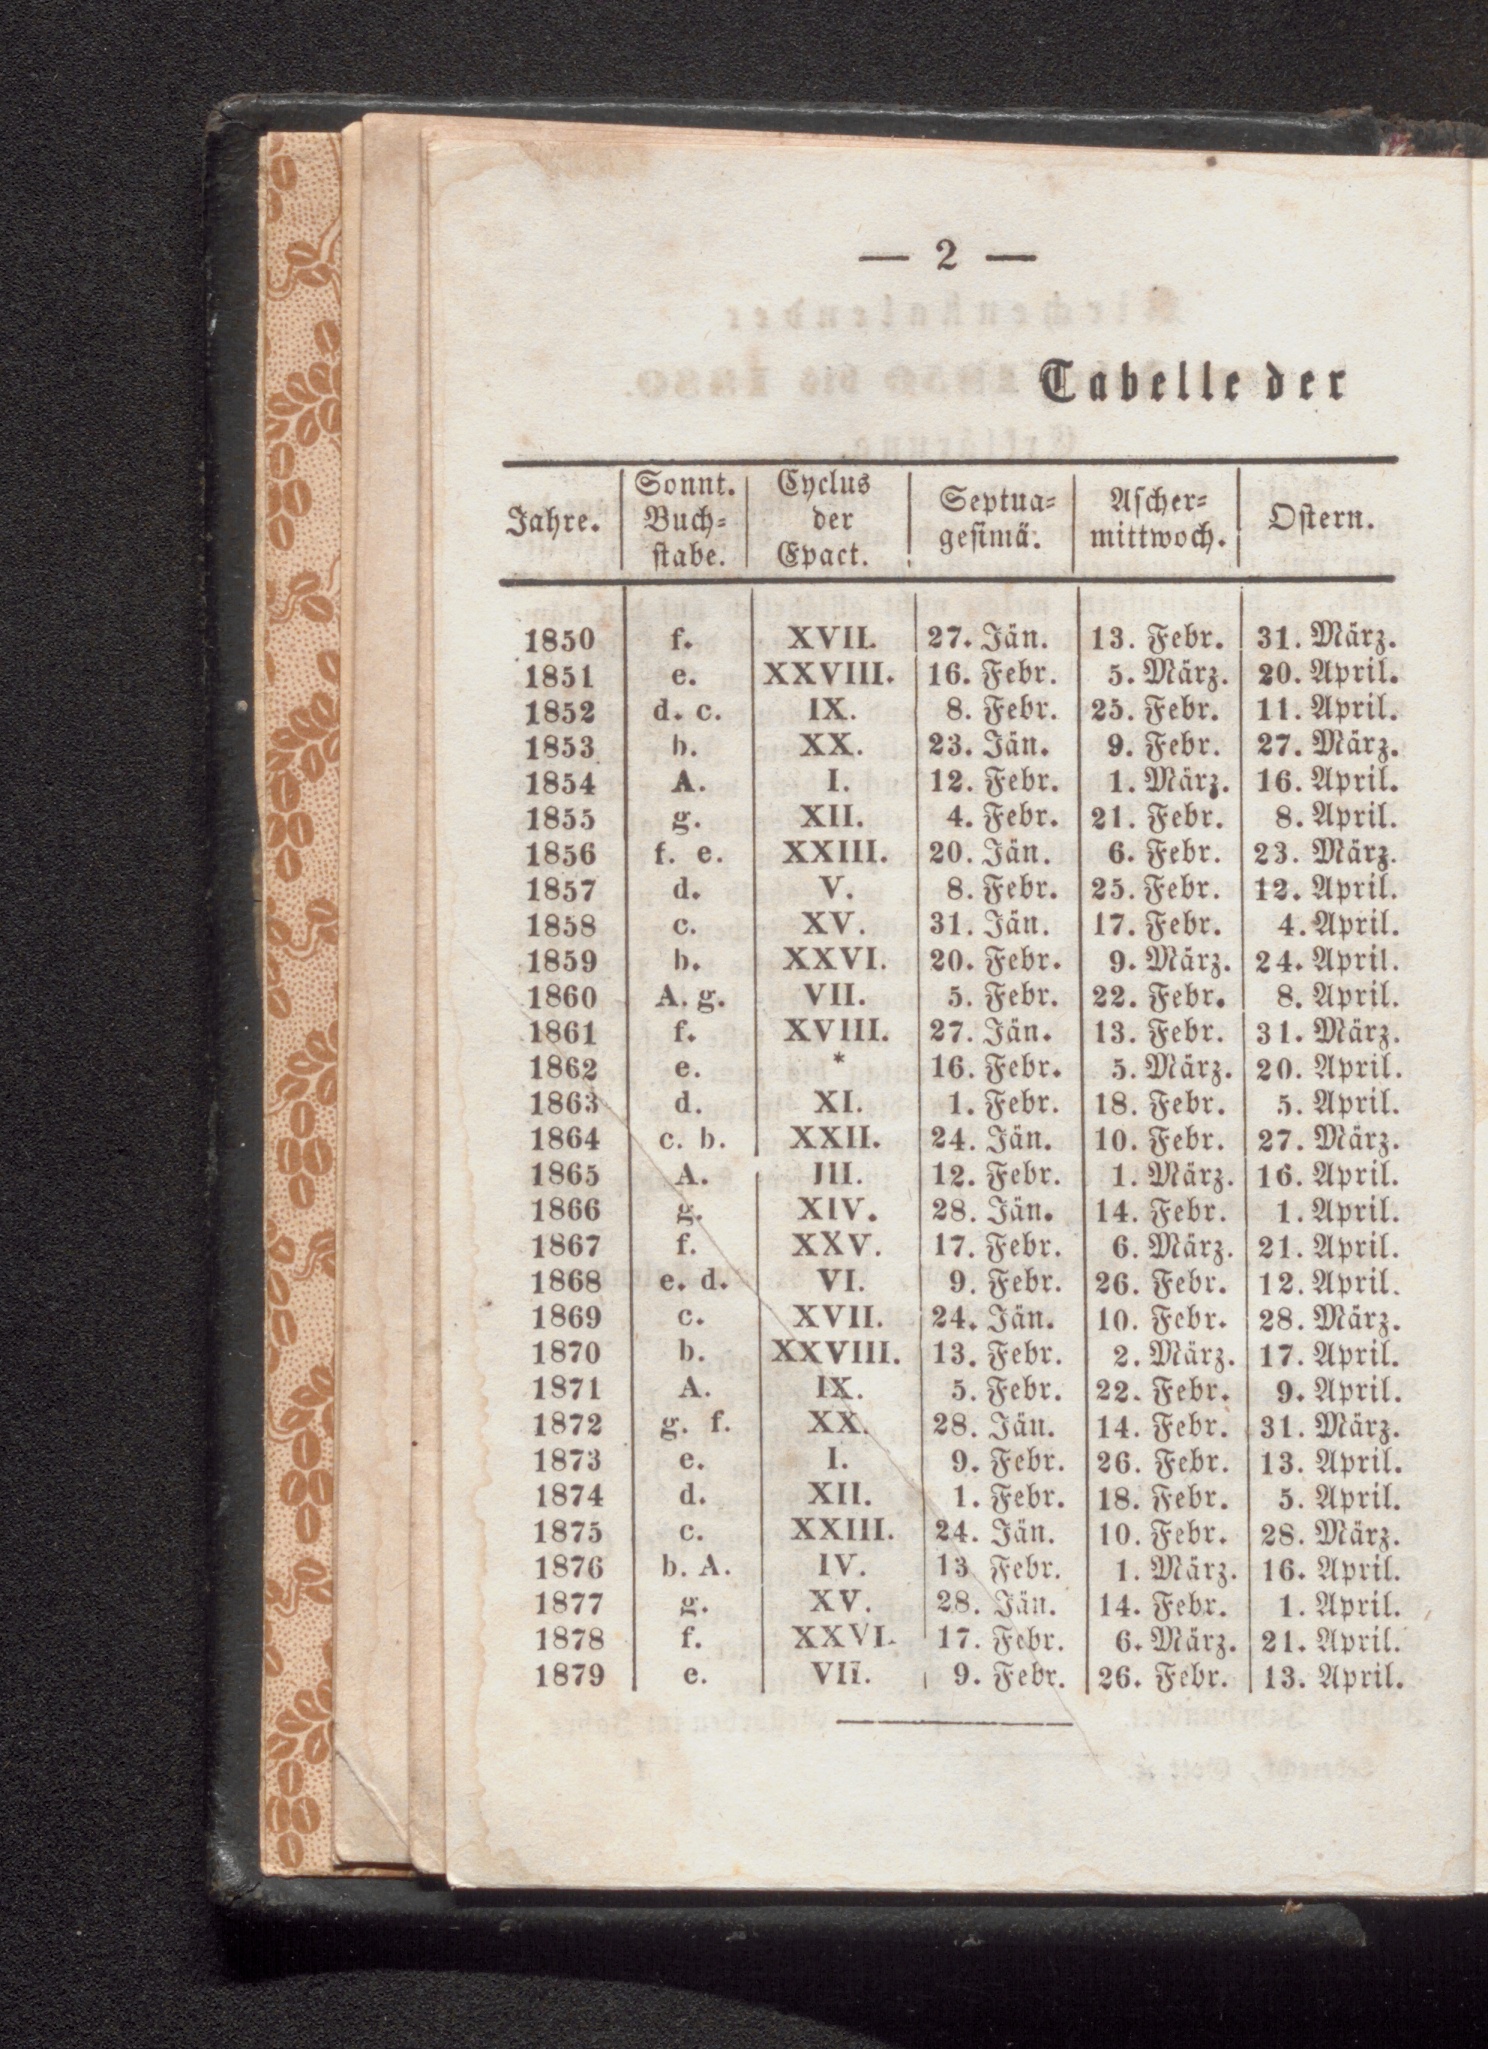 — 2 —
Tabelle der
Jahre. Sonnt. Buch- stabe. Cyclus der Epact. Septua- gesimä. Ascher- mittwoch. Ostern.
1850 f. XVII. 27. Jän. 13. Febr. 31. März.
1851 e. XXVIII. 16. Febr. 5. März. 20. April.
1852 d. c. IX. 8. Febr. 25. Febr. 11. April.
1853 b. XX. 23. Jän. 9. Febr. 27. März.
1854 A. I. 12. Febr. 1. März. 16. April.
1855 g. XII. 4. Febr. 21. Febr. 8. April.
1856 f. e. XXIII. 20. Jän. 6. Febr. 23. März.
1857 d. V. 8. Febr. 25. Febr. 12. April.
1858 c. XV. 31. Jän. 17. Febr. 4. April.
1859 b. XXVI. 20. Febr. 9. März. 24. April.
1860 A. g. VII. 5. Febr. 22. Febr. 8. April.
1861 f. XVIII. 27. Jän. 13. Febr. 31. März.
1862 e. * 16. Febr. 5. März. 20. April.
1863 d. XI. 1. Febr. 18. Febr. 5. April.
1864 c. b. XXII. 24. Jän. 10. Febr. 27. März.
1865 A. III. 12. Febr. 1. März. 16. April.
1866 g. XIV. 28. Jän. 14. Febr. 1. April.
1867 f. XXV. 17. Febr. 6. März. 21. April.
1868 e. d. VI. 9. Febr. 26. Febr. 12. April.
1869 c. XVII. 24. Jän. 10. Febr. 28. März.
1870 b. XXVIII. 13. Febr. 2. März. 17. April.
1871 A. IX. 5. Febr. 22. Febr. 9. April.
1872 g. f. XX. 28. Jän. 14. Febr. 31. März.
1873 e. I. 9. Febr. 26. Febr. 13. April.
1874 d. XII. 1. Febr. 18. Febr. 5. April.
1875 c. XXIII. 24. Jän. 10. Febr. 28. März.
1876 b. A. IV. 13 Febr. 1. März. 16. April.
1877 g. XV. 28. Jän. 14. Febr. 1. April.
1878 f. XXVI. 17. Febr. 6. März. 21. April.
1879 e. VII. 9. Febr. 26. Febr. 13. April.